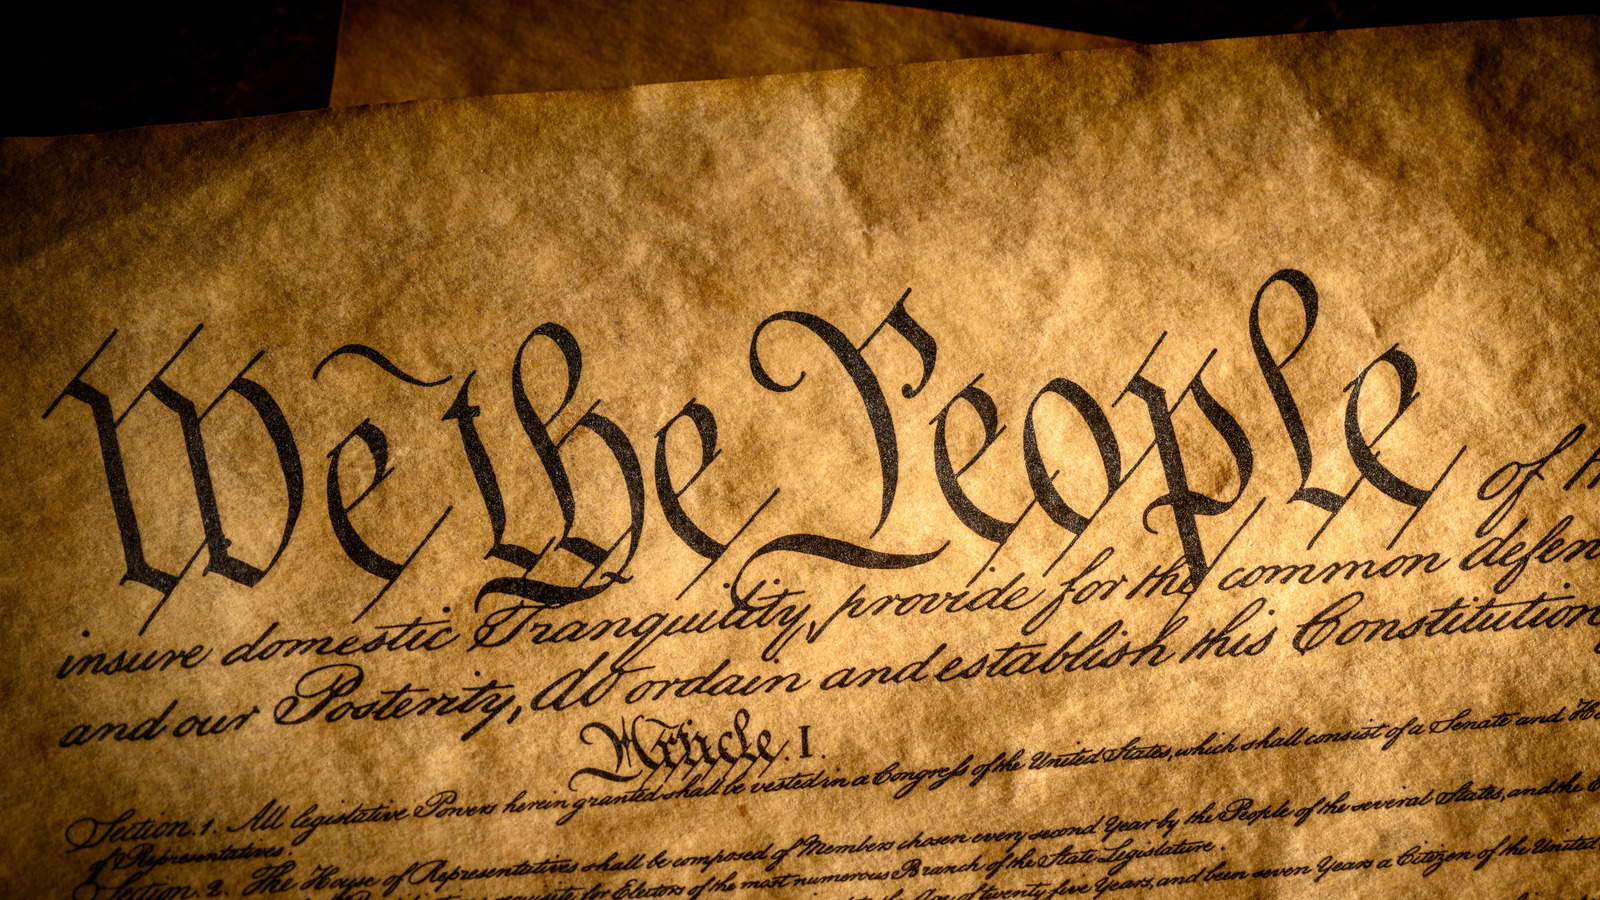 We the People of
insure domestic Tranquility, provide for the common defen
and our Posterity, do ordain and establish this Constitution
Article. I.
Section. 1. All legislative Powers herein granted shall be vested in a Congress of the United States, which shall consist of a Senate and Ho
of Representatives.
Section. 2. The House of Representatives shall be composed of Members chosen every second Year by the People of the several States, and the E
requisite for Electors of the most numerous Branch of the State Legislature.
the Age of twenty five Years, and been seven Years a Citizen of the United